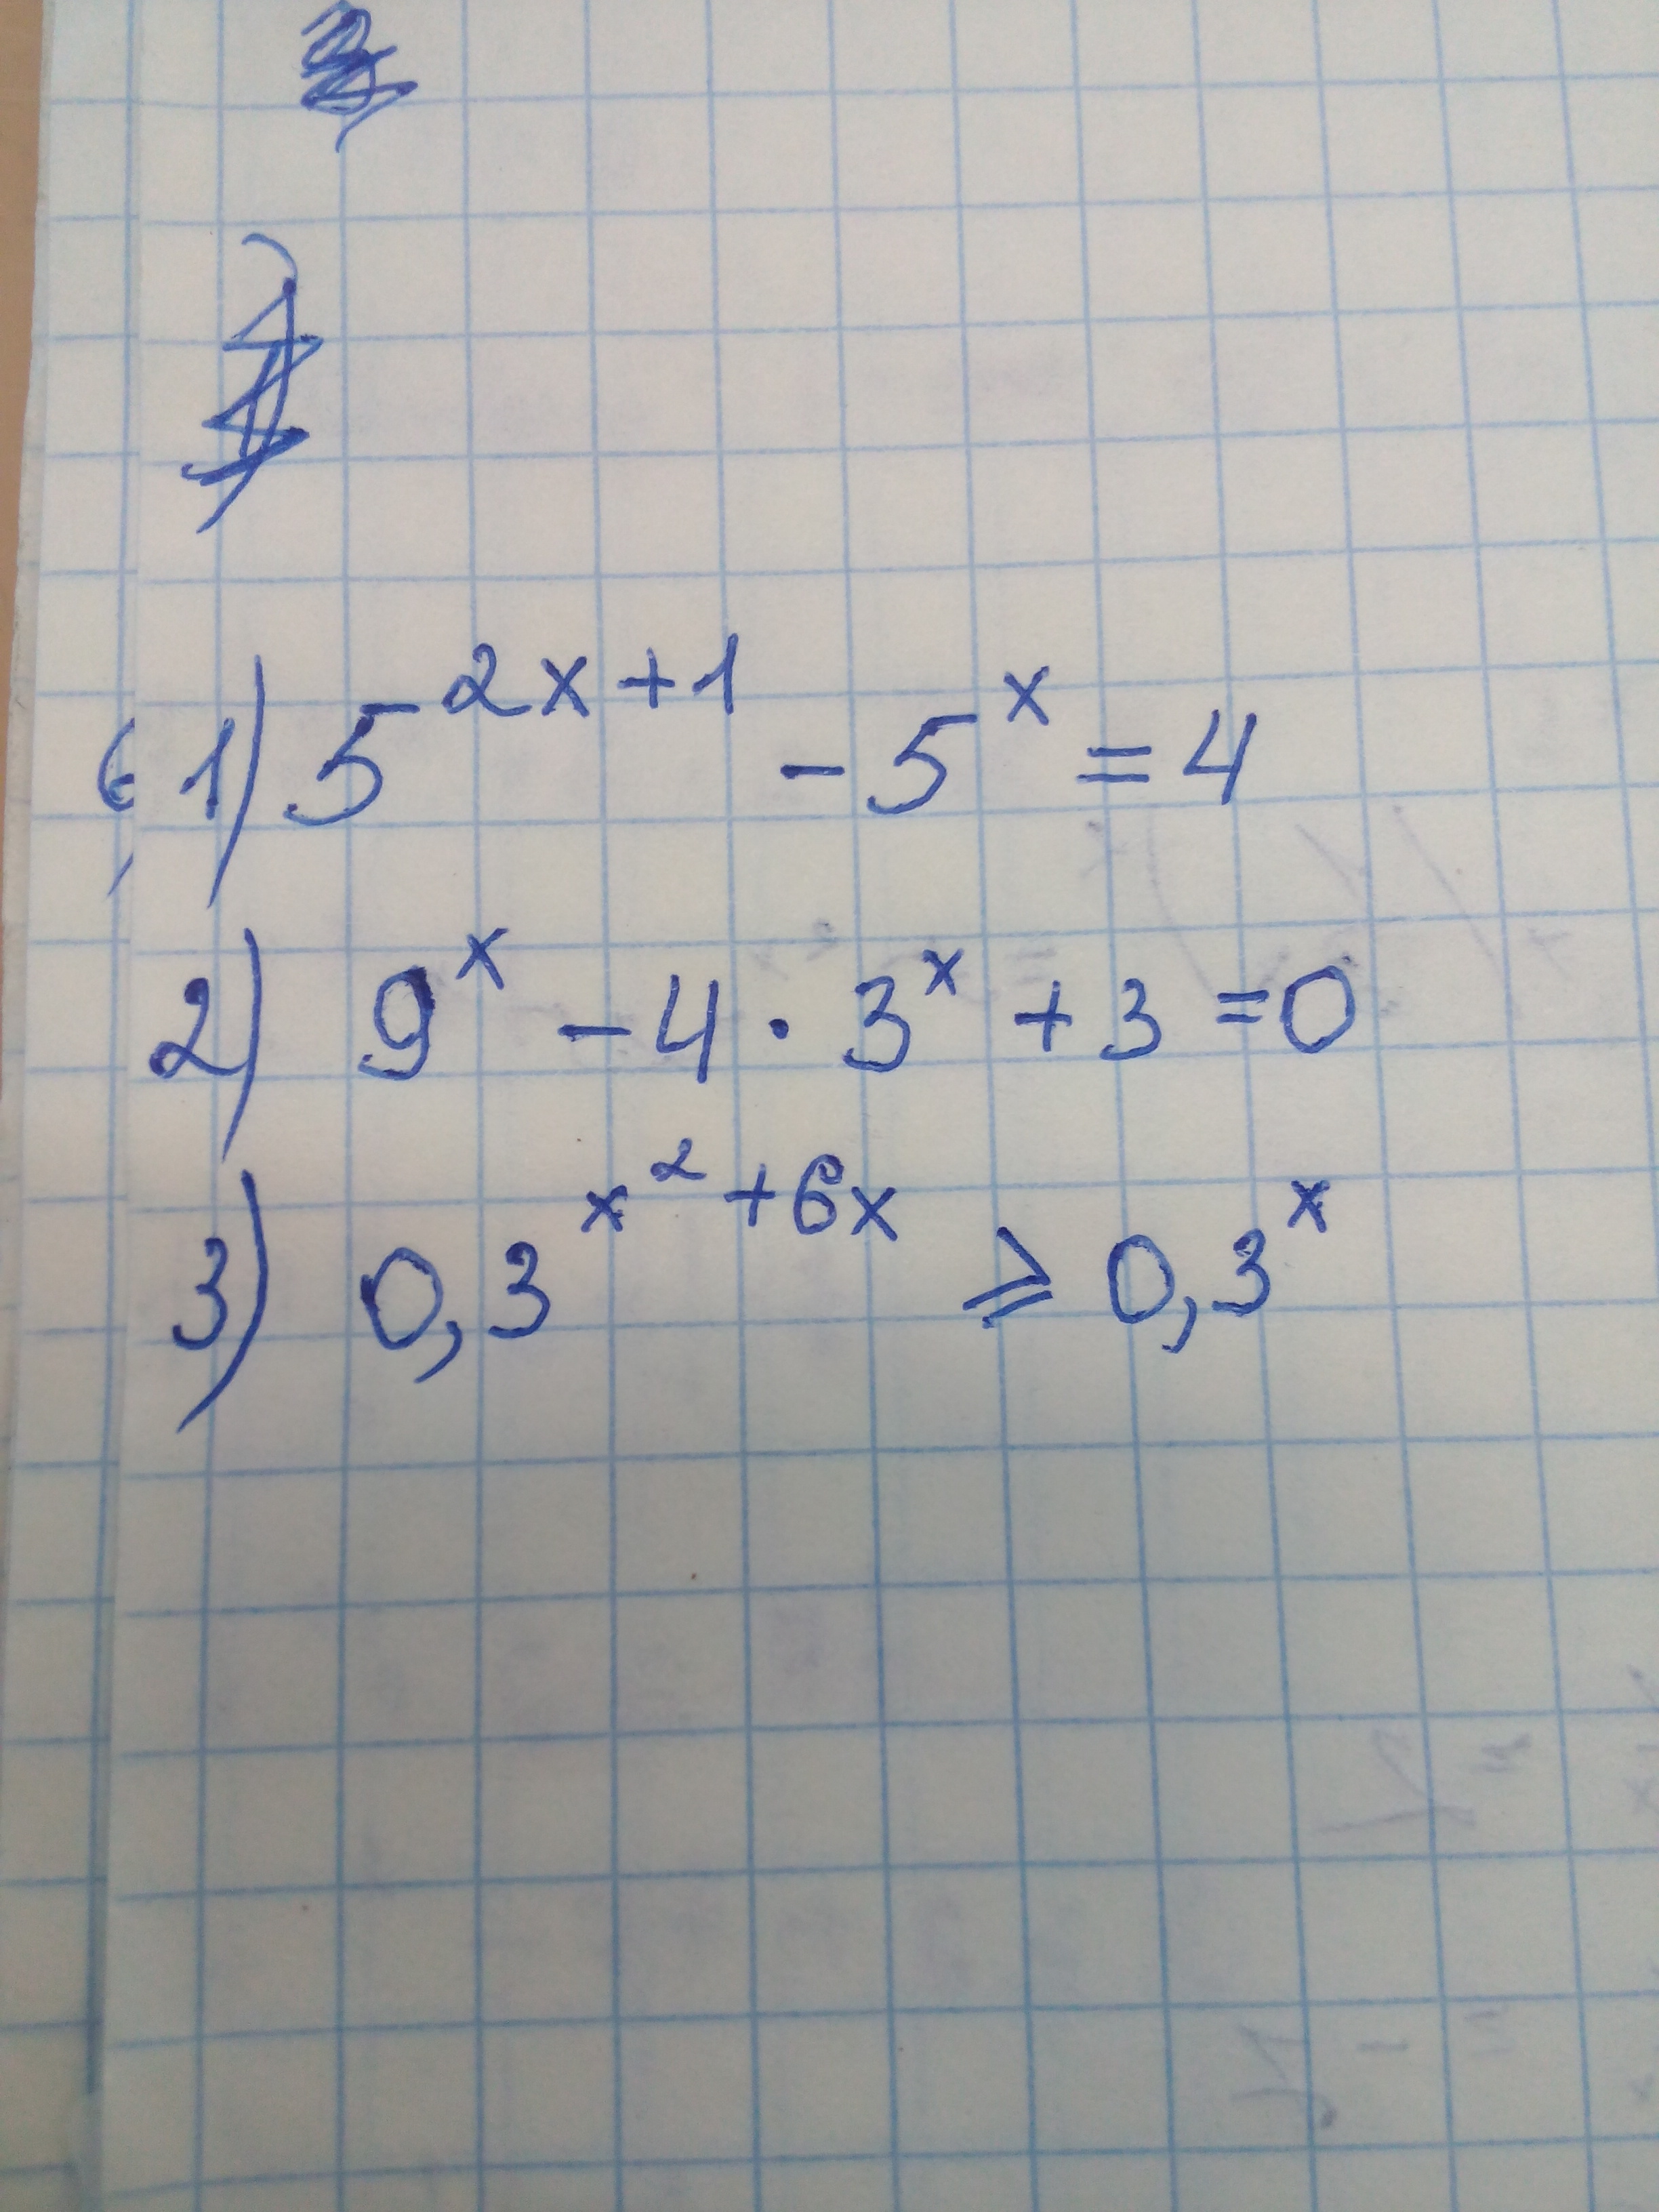 1) 5^{2x+1} - 5^x = 4
2) 9^x - 4 · 3^x + 3 = 0
3) 0,3^{x^2+6x} ⩾ 0,3^x